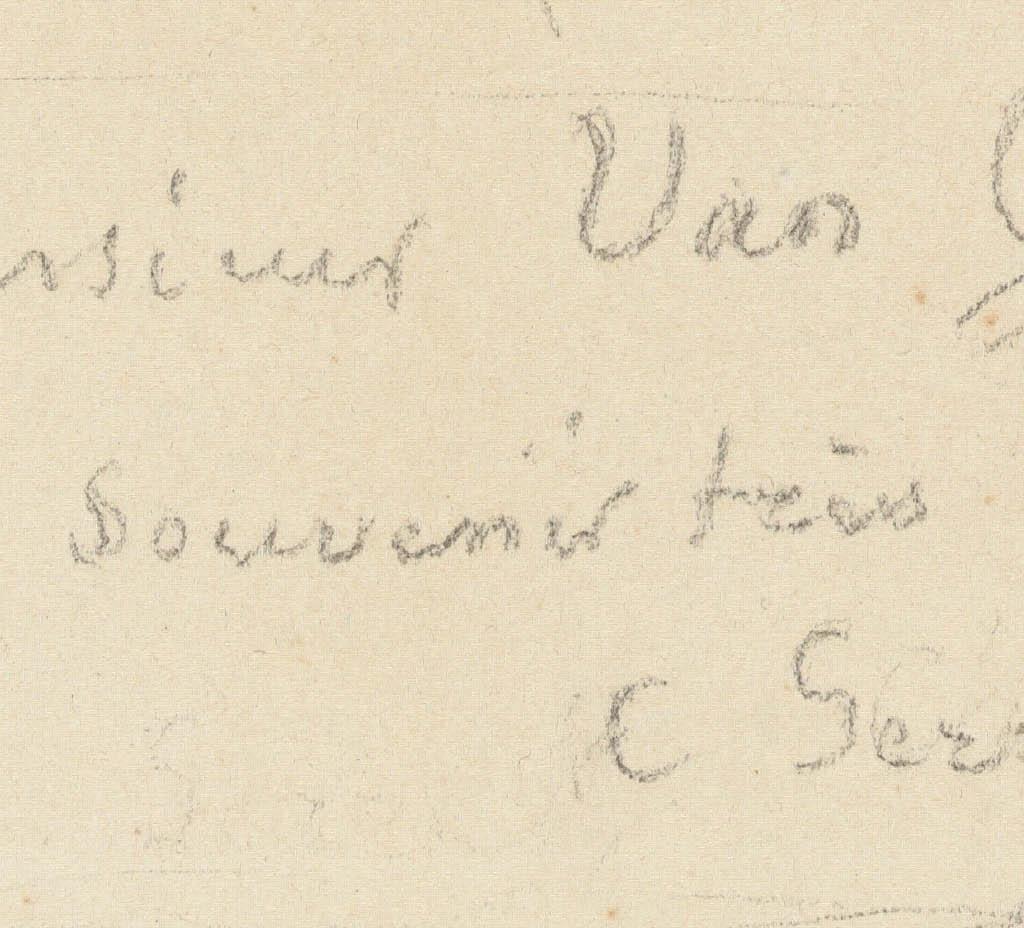 rsieur Van
Souvenir très
C Ser